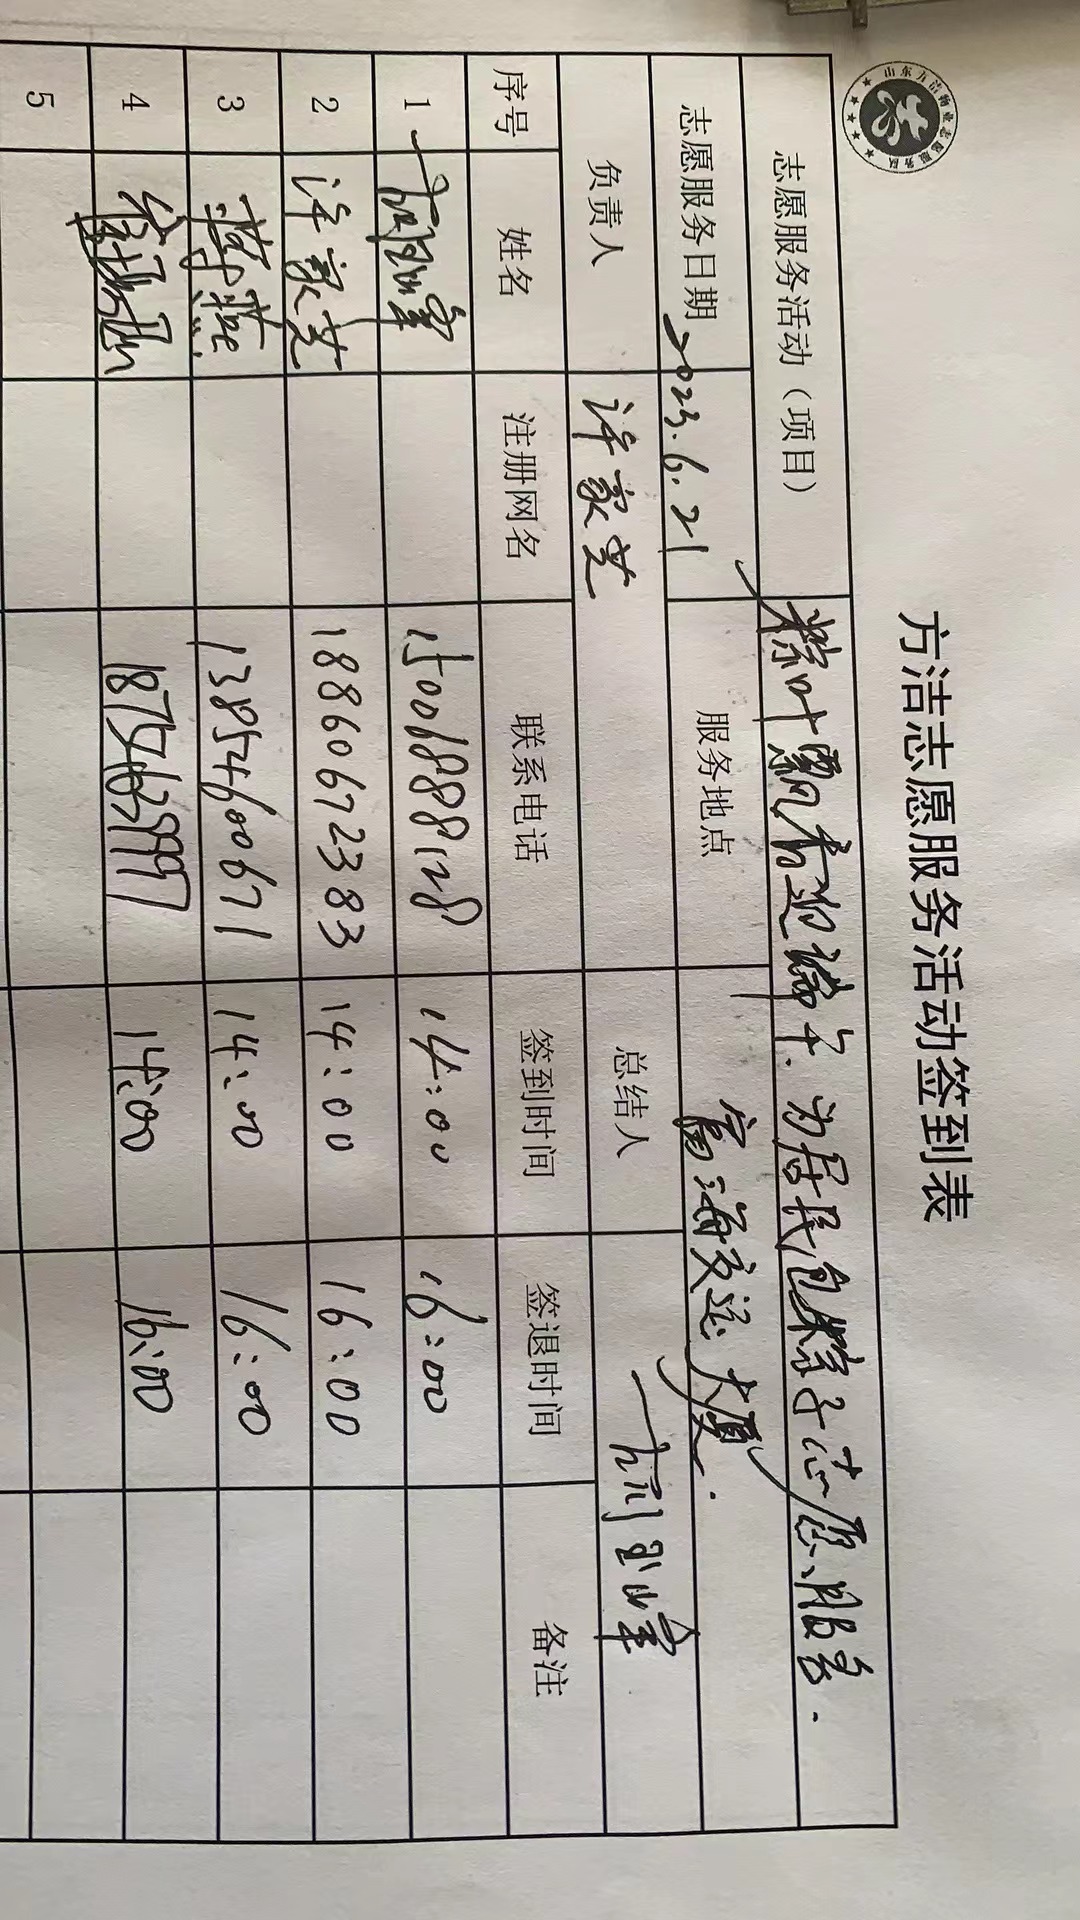 山东方洁物业志愿服务队
方洁志愿服务活动签到表
志愿服务活动（项目） 粽叶飘香迎端午.为居民包粽子志愿服务.
志愿服务日期 2023.6.21 服务地点 富海交运大厦.
负责人 许家芝 总结人
序号 姓名 注册网名 联系电话 签到时间 签退时间 备注
1 15006888128 14:00 16:00
2 许家芝 18860672383 14:00 16:00
3 薄燕 13854660671 14:00 16:00
4 14:00 16:00
5